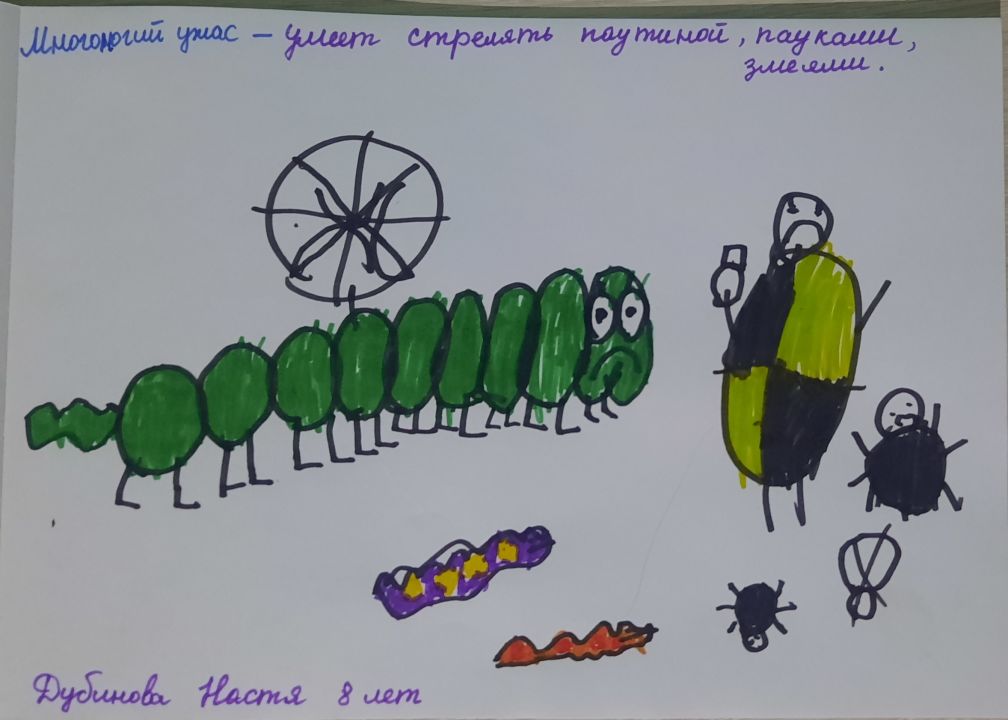 Многоногий ужас – умеет стрелять паутиной, пауками,
змеями.
Дубинова Настя 8 лет